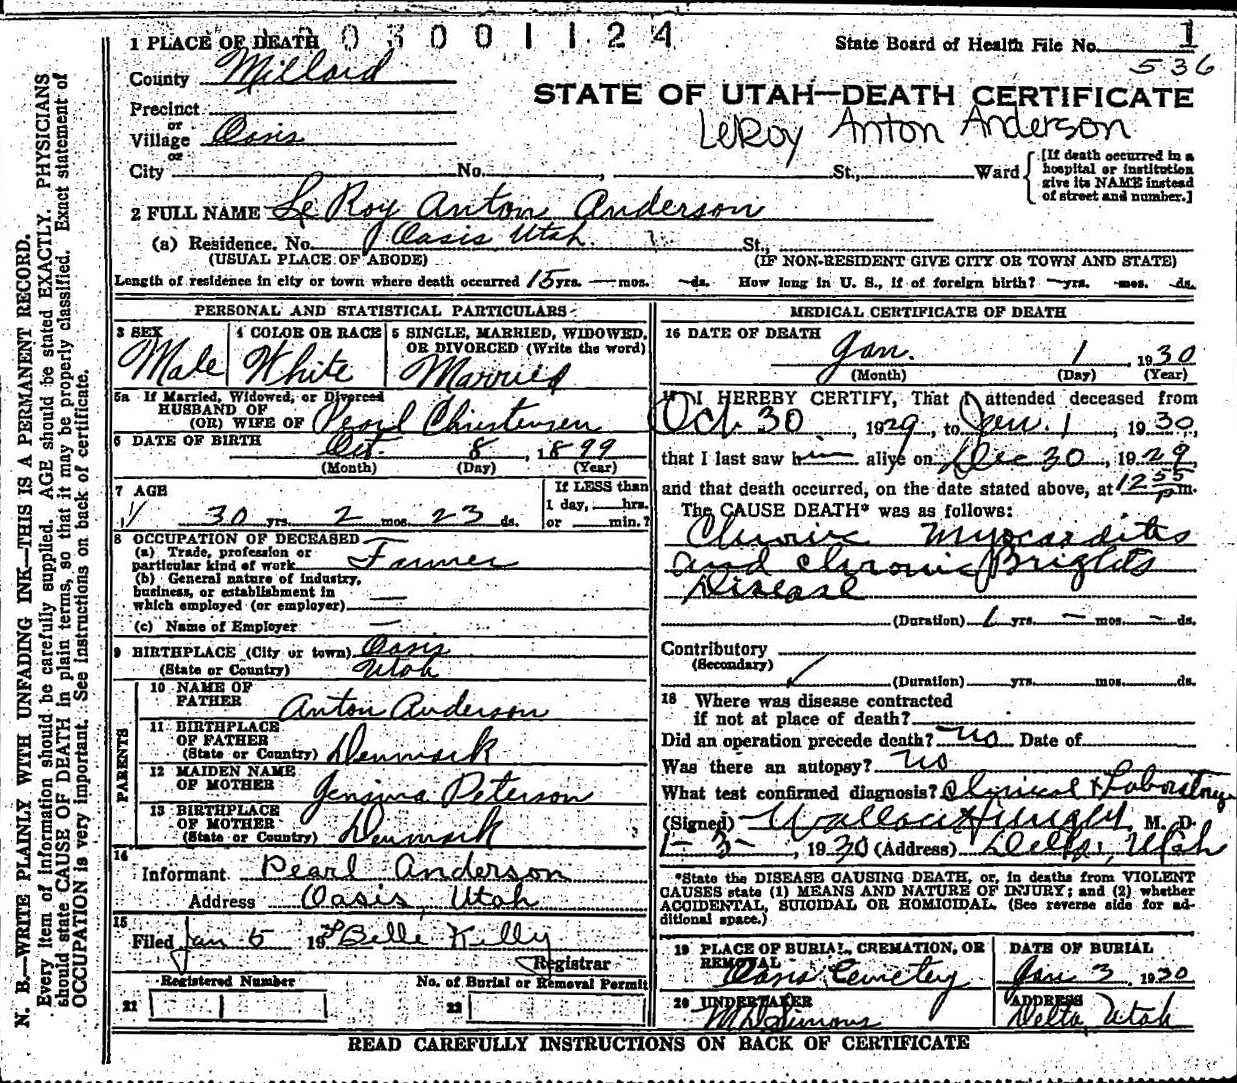 N. B.—WRITE PLAINLY WITH UNFADING INK—THIS IS A PERMANENT RECORD.
Every item of information should be carefully supplied. AGE should be stated EXACTLY. PHYSICIANS
should state CAUSE OF DEATH in plain terms, so that it may be properly classified. Exact statement of
OCCUPATION is very important. See instructions on back of certificate.
0 3 0 0 1 1 2 4
1 PLACE OF DEATH
State Board of Health File No. 1
536
County Millard
STATE OF UTAH—DEATH CERTIFICATE
LeRoy Anton Anderson
Precinct
or
Village Oasis
or
City No. , St., Ward
[If death occurred in a
hospital or institution
give its NAME instead
of street and number.]
2 FULL NAME Le Roy Anton Anderson
(a) Residence. No. Oasis Utah. St.,
(USUAL PLACE OF ABODE) (IF NON-RESIDENT GIVE CITY OR TOWN AND STATE)
Length of residence in city or town where death occurred 15 yrs. — mos. — ds. How long in U. S., if of foreign birth? — yrs. — mos. — ds.
PERSONAL AND STATISTICAL PARTICULARS
3 SEX
Male
4 COLOR OR RACE
White
5 SINGLE, MARRIED, WIDOWED,
OR DIVORCED (Write the word)
Married
5a If Married, Widowed, or Divorced
HUSBAND OF
(OR) WIFE OF Pearl Christensen
6 DATE OF BIRTH Oct. 8, 1899
(Month) (Day) (Year)
7 AGE
30 yrs. 2 mos. 23 ds.
If LESS than
1 day, hrs.
or min.?
8 OCCUPATION OF DECEASED
(a) Trade, profession or
particular kind of work Farmer
(b) General nature of industry,
business, or establishment in
which employed (or employer) —
(c) Name of Employer —
9 BIRTHPLACE (City or town) Oasis
(State or Country) Utah
PARENTS
10 NAME OF
FATHER Anton Anderson
11 BIRTHPLACE
OF FATHER
(State or Country) Denmark
12 MAIDEN NAME
OF MOTHER Jensina Peterson
13 BIRTHPLACE
OF MOTHER
(State or Country) Denmark
14
Informant Pearl Anderson
Address Oasis, Utah
15
Filed Jan 5 19 Belle Kelly
Registrar
Registered Number No. of Burial or Removal Permit
21 22
MEDICAL CERTIFICATE OF DEATH
16 DATE OF DEATH
Jan. 1, 1930
(Month) (Day) (Year)
I HEREBY CERTIFY, That I attended deceased from
Oct. 30, 1929, to Jan. 1, 1930,
that I last saw him alive on Dec 30, 1929
and that death occurred, on the date stated above, at 12 55 p m.
The CAUSE DEATH* was as follows:
Chronic Myocarditis
and chronic Brights
Disease
(Duration) 1 yrs. — mos. — ds.
Contributory
(Secondary)
(Duration) yrs. mos. ds.
18 Where was disease contracted
if not at place of death?
Did an operation precede death? no Date of
Was there an autopsy? no
What test confirmed diagnosis? Clinical & Laboratory
(Signed) M. D.
1-3-, 1930 (Address) Delta, Utah
*State the DISEASE CAUSING DEATH, or, in deaths from VIOLENT
CAUSES state (1) MEANS AND NATURE OF INJURY; and (2) whether
ACCIDENTAL, SUICIDAL OR HOMICIDAL. (See reverse side for ad-
ditional space.)
19 PLACE OF BURIAL, CREMATION, OR
REMOVAL
Oasis Cemetery
DATE OF BURIAL
Jan 3 1930
20 UNDERTAKER
ADDRESS
Delta, Utah
READ CAREFULLY INSTRUCTIONS ON BACK OF CERTIFICATE